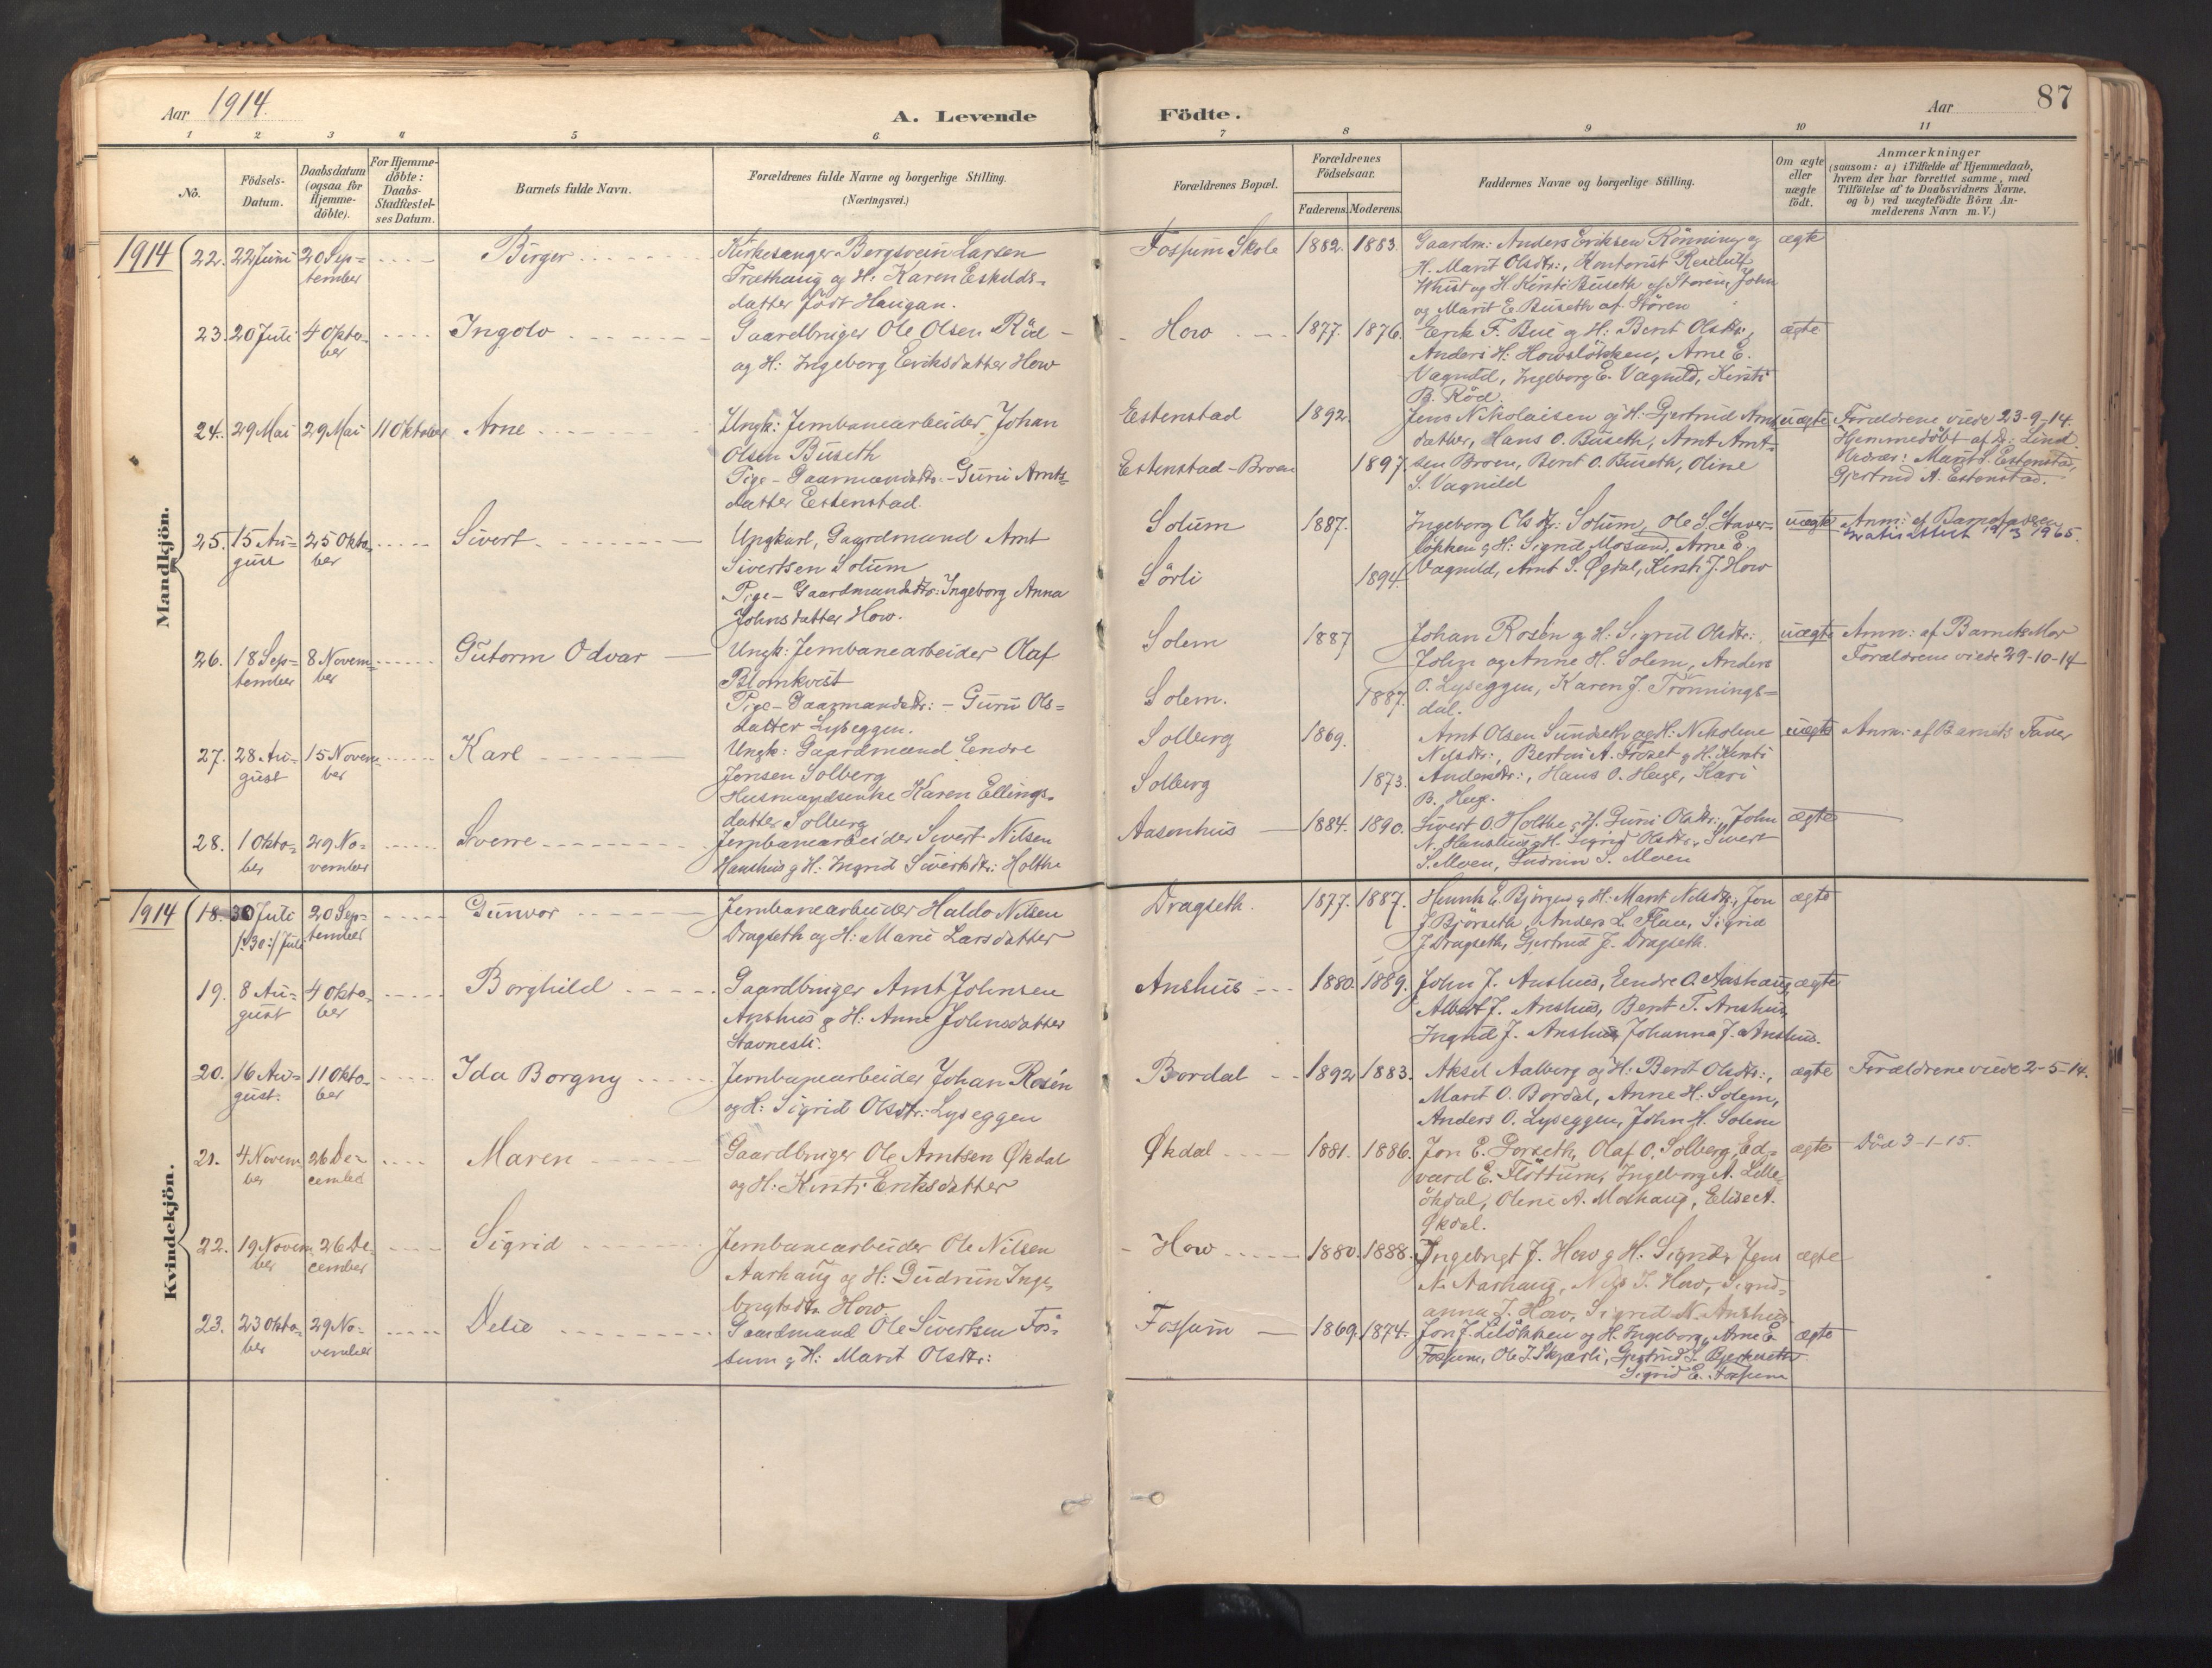 Aar 1914. A. Levende Födte. Aar 87
1 2 3 4 5 6 7 8 9 10 11
No.
Födsels-Datum.
Daabsdatum (ogsaa for Hjemme-döbte).
For Hjemme-döbte: Daabs-Stadfæstel-ses Datum.
Barnets fulde Navn.
Forældrenes fulde Navne og borgerlige Stilling. (Næringsvei.)
Forældrenes Bopæl.
Forældrenes Födselsaar.
Faderens. Moderens.
Faddernes Navne og borgerlige Stilling.
Om ægte eller uægte födt.
Anmærkninger
(saasom: a) i Tilfælde af Hjemmedaab,
hvem der har forrettet samme, med
Tilföielse af to Daabsvidners Navne.
og b) ved uægtefödte Börn An-
melderens Navn m. V.)
Mandkjön.
1914
22. 22 Juni 20 Sep=
tember
Birger
Kirkesanger Bergsvein Larsen
Træthaug og H: Karen Eskilds-
datter født Haugan.
Fossum Skole 1882. 1883.
Gaardm: Anders Eriksen Rönning og
H. Marit Olsdtr:, Kontorist
Whist og H. Kirsti Buseth af Stören, John
og Marit E. Buseth af Stören
ægte
23. 20 Juli 4 Okto-
ber
Ingolv
Gaardbruger Ole Olsen Röd -
og H: Ingeborg Eriksdatter How
How 1877. 1876.
Erik F. Bue og H: Berit Olsdtr;
Anders H: Howslökken, Arne E.
Vagnild, Ingeborg E. Vagnild, Kirsti
B. Röd.
ægte
24. 29 Mai 29 Mai 11 Oktober
Arne
Ungk: Jernbanearbeider Johan
Olsen Buseth
Pige - Gaarmandsdtr: - Guru Arnts=
datter Estenstad.
Estenstad 1892.
Estenstad-Broen 1897.
Jens Nikolaisen og H: Gjertrud Arnts
datter, Hans O. Buseth, Arnt Arnt=
sen Broen, Berit O. Buseth, Oline
S. Vagnild
uægte
Forældrene viede 23-9-14.
Hjemmedöbt af D: Lind
Marit S. Estenstad,
Gjertrud A. Estenstad.
25. 15 Au=
gust
25 Okto-
ber
Sivert
Ungkarl, Gaardmand Arnt
Sivertsen Solum
Pige - Gaardmandsdtr: Ingeborg Anna
Johnsdatter How.
Solum 1887.
Sörli 1894.
Ingeborg Olsdtr: Solum, Ole S. Staver-
lökken og H: Sigrid Mosand, Arne E.
Vagnild, Arnt S. Øgdal, Kirsti J. How
uægte
Anm: af Barnefaderen
attest 1965.
26. 18 Sep=
tember
8 Novem=
ber
Gutorm Odvar
Ungk: Jernbanearbeider Olaf
Blomkvist
Pige - Gaarmandsdtr: - Guru Ols=
datter Lyseggen.
Solem 1887
Solem. 1887.
Johan Rosén og H: Sigrid Olsdtr:
John og Anne H. Solem, Anders
O. Lyseggen, Karen J. Trönnings=
dal.
uægte
Anm: af Barnets Mor
Forældrene viede 29-10-14
27. 28 Au=
gust
15 Novem
ber
Karl
Ungk: Gaardmand Endre
Jonsen Solberg
Husmandsenke Karen Ellings-
datter Solberg
Solberg 1869.
Solberg 1873.
Arnt Olsen Sundeth og H: Nikoline
Nilsdtr:, Berten A. Frøzet og H: Kirsti
Andersdtr:, Hans O. Hege, Kari
B. Hege.
uægte
Anm: af Barnets Faver
28. 1 Okto-
ber
29 No-
vember
Sverre
Jernbanearbeider Sivert Nilsen
Hanshus og H: Ingrid Sivertsdtr: Holthe
Aasenhus 1884. 1890.
Sivert O. Holthe, H. Guri Olsdtr:, John
N. Hanshus og H. Sigrid Olsdtr, Sivert
S. Moen, Gudrun S. Moen
ægte
Kvindekjön.
1914
18. 30 Juli
/:30:/ Juli
20 Sep=
tember
Gunvor
Jernbanearbeider Haldo Nilsen
Dragseth og H: Marie Larsdatter
Dragseth. 1877. 1887.
Henrik E. Bjørgen og H: Marit Nilsdtr:, Jon
J. Bjørseth, Anders L. Flaen, Sigrid
J. Dragseth, Gjertrud J. Dragseth.
ægte
19. 8 Au=
gust
4 Okto-
ber
Borghild
Gaardbruger Arnt Johnsen
Anshus og H: Anne Johnsdatter
Stavnesli.
Anshus 1880. 1889.
John J. Anshus, Endre O. Aashaug,
Albert J. Anshus, Berit T. Anshus,
Ingrid J. Anshus, Johanna J. Anshus.
ægte
20. 16 Au=
gust.
11 Okto-
ber
Ida Borgny
Jernbanearbeider Johan Rosén
og H: Sigrid Olsdtr: Lyseggen
Bordal 1892 1883.
Aksel Aalberg og H: Berit Olsdtr:,
Marit O. Bordal, Anne H. Solem,
Anders O. Lyseggen, John H. Solem
ægte
Forældrene viede 2-5-14.
21. 4 Novem
ber
26 De-
cember
Maren
Gaardbruger Ole Arntsen Økdal
og H: Kirsti Eriksdatter
Økdal 1881. 1886.
Jon E. Gorseth, Olaf O. Solberg, Ed-
vard E. Flöttum, Ingeborg A. Lille-
ökdal, Oline A. Moshaug, Elise A.
Økdal.
ægte
Död 3-1-15.
22. 19 Novem
ber
26 De-
cember
Sigrid
Jernbanearbeider Ole Nilsen
Aashaug og H: Gudrun Inge-
brigtsdtr How.
How 1880. 1888.
Ingebrigt J. How og H. Sigrid, Jens
N. Aashaug, Nils J. How, Sigrid-
anna J. How, Sigrid N. Anshus.
ægte
23. 23 Okto-
ber
29 No-
vember
Delie
Gaardmand Ole Sivertsen Fos-
sum og H: Marit Olsdtr:
Fossum 1869. 1874.
Jon J. Lilökken og H. Ingeborg, Arne E.
Fossum, Ole J. Skjærli, Gjertrud J. Bjerkeseth
Sigrid E. Fossum
ægte